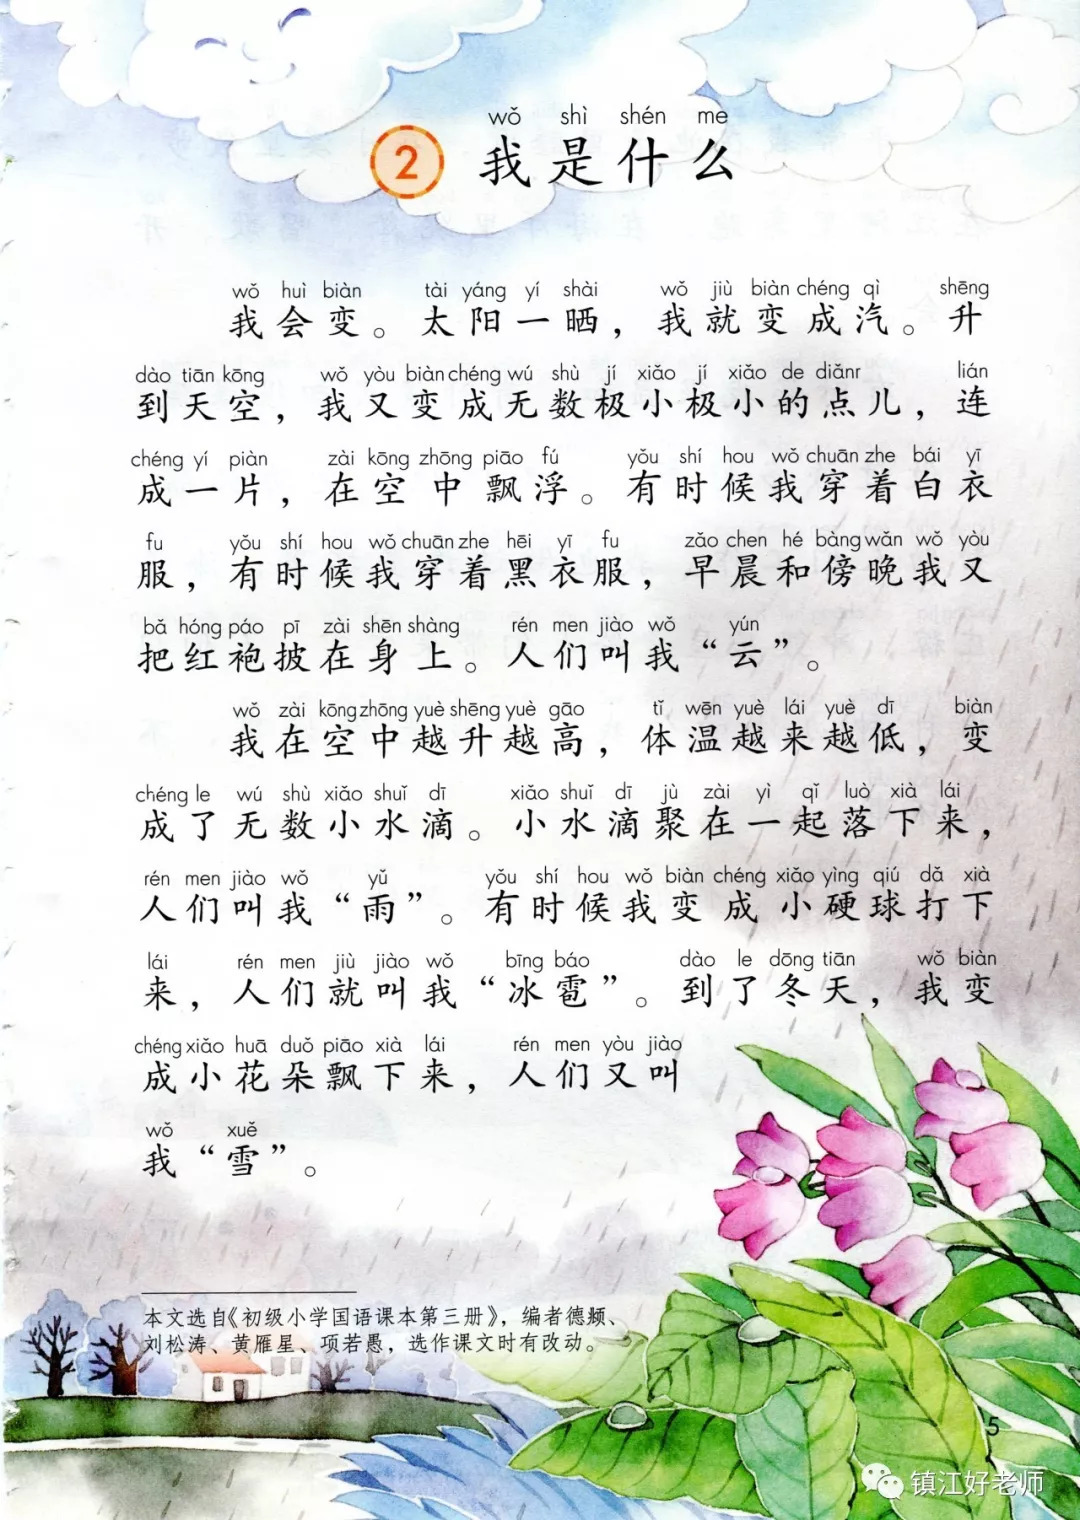 wǒ shì shén me
2 我是什么
wǒ huì biàn tài yáng yí shài wǒ jiù biàn chéng qì shēng
我会变。太阳一晒，我就变成汽。升
dào tiān kōng wǒ yòu biàn chéng wú shù jí xiǎo jí xiǎo de diǎnr lián
到天空，我又变成无数极小极小的点儿，连
chéng yí piàn zài kōng zhōng piāo fú yǒu shí hou wǒ chuān zhe bái yī
成一片，在空中飘浮。有时候我穿着白衣
fu yǒu shí hou wǒ chuān zhe hēi yī fu zǎo chen hé bàng wǎn wǒ yòu
服，有时候我穿着黑衣服，早晨和傍晚我又
bǎ hóng páo pī zài shēn shàng rén men jiào wǒ yún
把红袍披在身上。人们叫我“云”。
wǒ zài kōng zhōng yuè shēng yuè gāo tǐ wēn yuè lái yuè dī biàn
我在空中越升越高，体温越来越低，变
chéng le wú shù xiǎo shuǐ dī xiǎo shuǐ dī jù zài yì qǐ luò xià lái
成了无数小水滴。小水滴聚在一起落下来，
rén men jiào wǒ yǔ yǒu shí hou wǒ biàn chéng xiǎo yìng qiú dǎ xià
人们叫我“雨”。有时候我变成小硬球打下
lái rén men jiù jiào wǒ bīng báo dào le dōng tiān wǒ biàn
来，人们就叫我“冰雹”。到了冬天，我变
chéng xiǎo huā duǒ piāo xià lái rén men yòu jiào
成小花朵飘下来，人们又叫
wǒ xuě
我“雪”。
本文选自《初级小学国语课本第三册》，编者德颖、
刘松涛、黄雁星、项若愚，选作课文时有改动。
5
镇江好老师